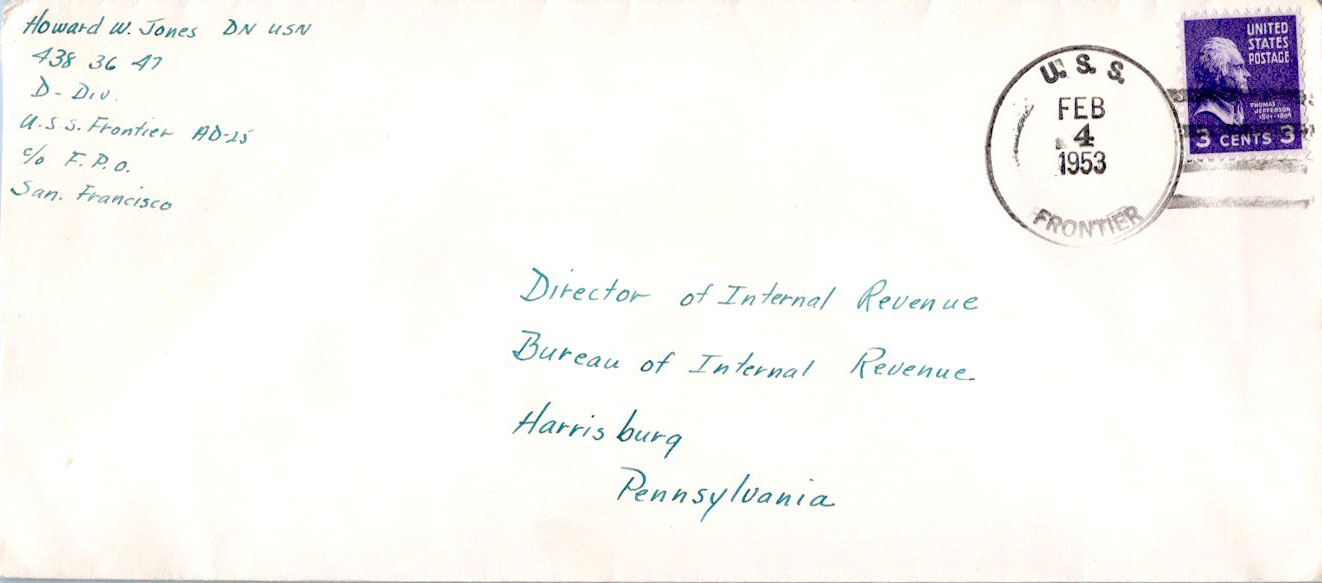 Howard W. Jones DN USN
438 36 47
D- Div.
U.S.S. Frontier AD-25
c/o F.P.O.
San. Francisco
U.S.S.
FEB
4
1953
FRONTIER
UNITED
STATES
POSTAGE
THOMAS
JEFFERSON
1801-1809
3 CENTS 3
Director of Internal Revenue
Bureau of Internal Revenue
Harrisburg
Pennsylvania